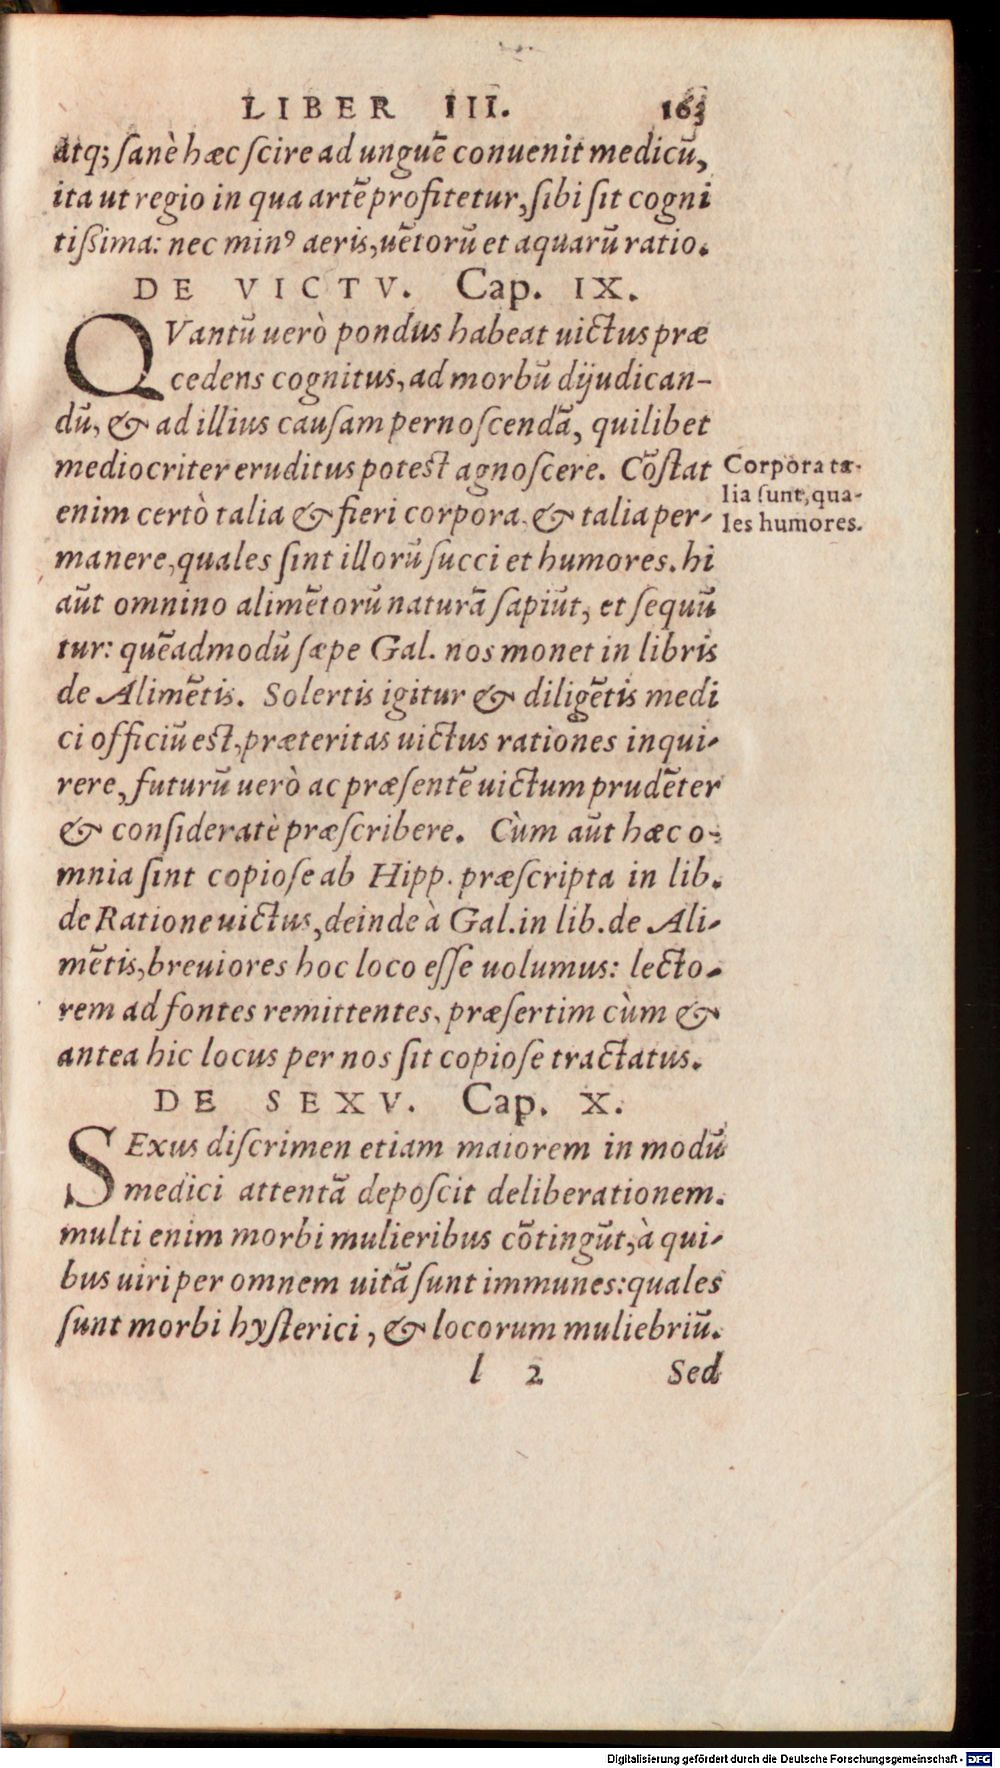 LIBER III. 163
atq; sanè hæc scire ad unguẽ conuenit medicũ,
ita ut regio in qua artẽ profitetur, sibi sit cogni
tißima: nec minꝰ aeris, uẽtorũ et aquarũ ratio.
DE VICTV. Cap. IX.
QVantũ uerò pondus habeat uictus præ
cedens cognitus, ad morbũ dijudican-
dũ, & ad illius causam pernoscendã, quilibet
mediocriter eruditus potest agnoscere. Cõstat
enim certò talia & fieri corpora & talia per-
manere, quales sint illorũ succi et humores. hi
aũt omnino alimẽtorũ naturã sapiũt, et sequũ
tur: quẽadmodũ sæpe Gal. nos monet in libris
de Alimẽtis. Solertis igitur & diligẽtis medi
ci officiũ est, præteritas uictus rationes inqui-
rere, futurũ uerò ac præsentẽ uictum prudẽter
& consideratè præscribere. Cùm aũt hæc o-
mnia sint copiose ab Hipp. præscripta in lib.
de Ratione uictus, deinde à Gal. in lib. de Ali-
mẽtis, breuiores hoc loco esse uolumus: lecto-
rem ad fontes remittentes, præsertim cùm &
antea hic locus per nos sit copiose tractatus.
Corpora ta-
lia sunt, qua-
les humores.
DE SEXV. Cap. X.
SExus discrimen etiam maiorem in modũ
medici attentã deposcit deliberationem.
multi enim morbi mulieribus cõtingũt, à qui-
bus uiri per omnem uitã sunt immunes: quales
sunt morbi hysterici, & locorum muliebriũ.
l 2 Sed
Digitalisierung gefördert durch die Deutsche Forschungsgemeinschaft - DFG